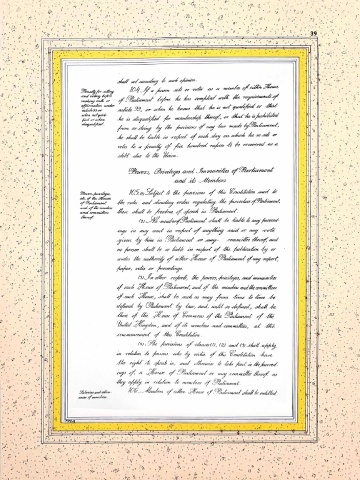 39
shall act according to such opinion.
Penalty for sitting
and voting before
making oath or
affirmation under
article 99 or
when not quali-
fied or when
disqualified.
104. If a person sits or votes as a member of either House
of Parliament before he has complied with the requirements of
article 99, or when he knows that he is not qualified or that
he is disqualified for membership thereof, or that he is prohibited
from so doing by the provisions of any law made by Parliament,
he shall be liable in respect of each day on which he so sits or
votes to a penalty of five hundred rupees to be recovered as a
debt due to the Union.
Powers, Privileges and Immunities of Parliament
and its Members
Powers, privileges,
etc. of the Houses
of Parliament
and of the members
and committees
thereof.
105. (1) Subject to the provisions of this Constitution and to
the rules and standing orders regulating the procedure of Parliament,
there shall be freedom of speech in Parliament.
(2) No member of Parliament shall be liable to any proceed-
ings in any court in respect of anything said or any vote
given by him in Parliament or any committee thereof, and
no person shall be so liable in respect of the publication by or
under the authority of either House of Parliament of any report,
paper, votes or proceedings.
(3) In other respects, the powers, privileges, and immunities
of each House of Parliament, and of the members and the committees
of each House, shall be such as may from time to time be
defined by Parliament by law, and, until so defined, shall be
those of the House of Commons of the Parliament of the
United Kingdom, and of its members and committees, at the
commencement of this Constitution.
(4) The provisions of clauses (1), (2) and (3) shall apply
in relation to persons who by virtue of this Constitution have
the right to speak in, and otherwise to take part in the proceed-
ings of, a House of Parliament or any committee thereof as
they apply in relation to members of Parliament.
Salaries and allow-
ances of members.
106. Members of either House of Parliament shall be entitled